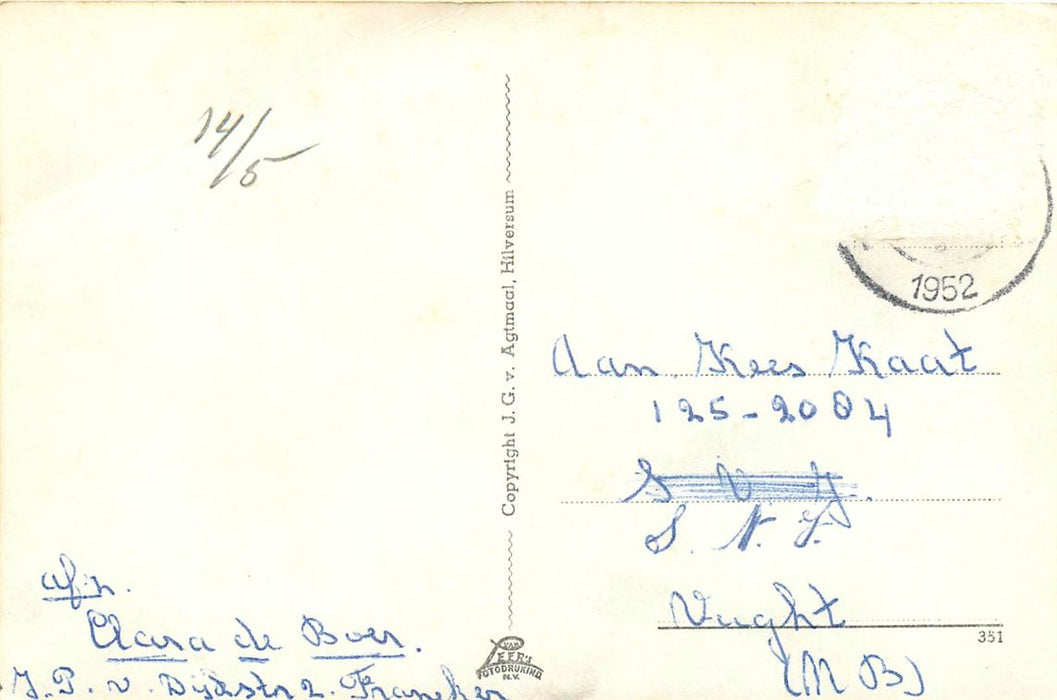 14/5
Copyright J. G. v. Agtmaal, Hilversum
1952
Aan Kees Kaat
125-2084
S. N. J.
Vught
351
(N B)
afz.
Clara de Boer.
J. P. v. Dijkstr 2. Franeker
VAN LEER's
FOTODRUKIND
N.V.